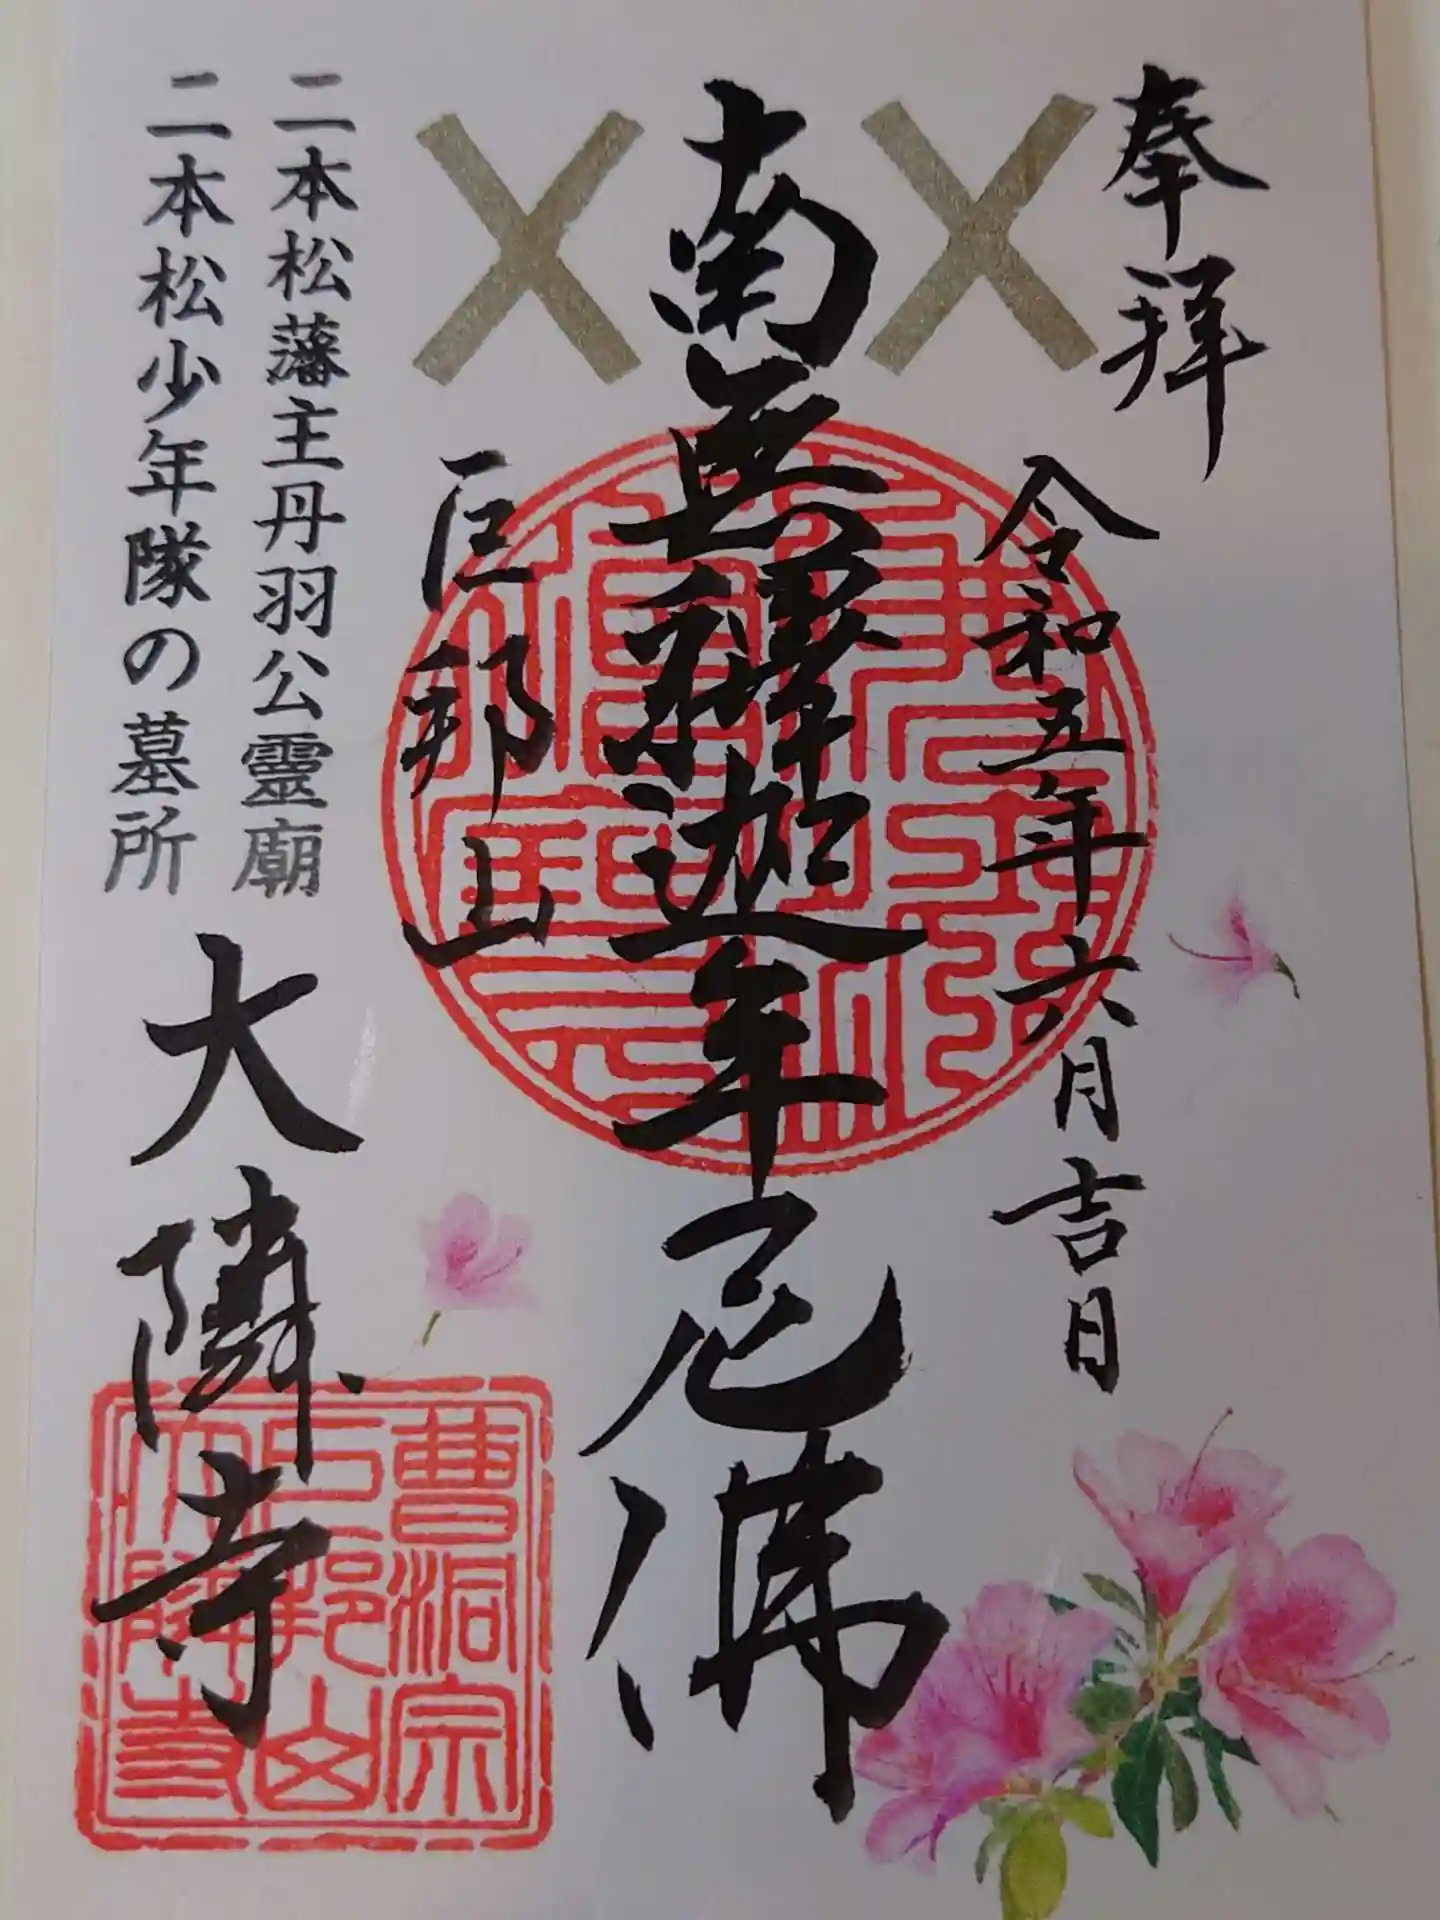 奉拝
令和五年六月吉日
南無釋迦牟尼佛
巨邦山
二本松藩主丹羽公靈廟
二本松少年隊の墓所
大隣寺
曹洞宗
巨邦山
大隣寺